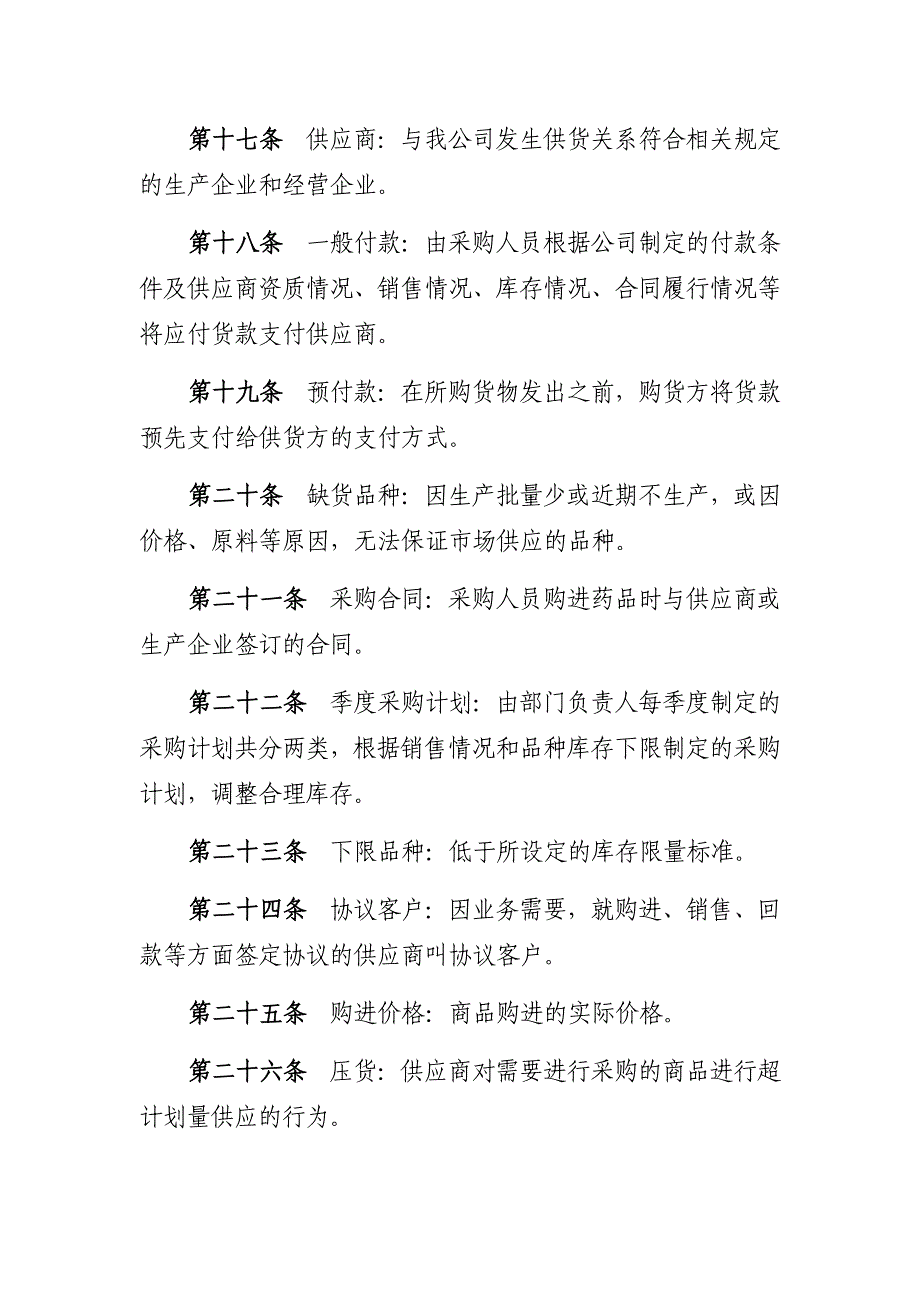 第十七条　供应商：与我公司发生供货关系符合相关规定
的生产企业和经营企业。
第十八条　一般付款：由采购人员根据公司制定的付款条
件及供应商资质情况、销售情况、库存情况、合同履行情况等
将应付货款支付供应商。
第十九条　预付款：在所购货物发出之前，购货方将货款
预先支付给供货方的支付方式。
第二十条　缺货品种：因生产批量少或近期不生产，或因
价格、原料等原因，无法保证市场供应的品种。
第二十一条　采购合同：采购人员购进药品时与供应商或
生产企业签订的合同。
第二十二条　季度采购计划：由部门负责人每季度制定的
采购计划共分两类，根据销售情况和品种库存下限制定的采购
计划，调整合理库存。
第二十三条　下限品种：低于所设定的库存限量标准。
第二十四条　协议客户：因业务需要，就购进、销售、回
款等方面签定协议的供应商叫协议客户。
第二十五条　购进价格：商品购进的实际价格。
第二十六条　压货：供应商对需要进行采购的商品进行超
计划量供应的行为。